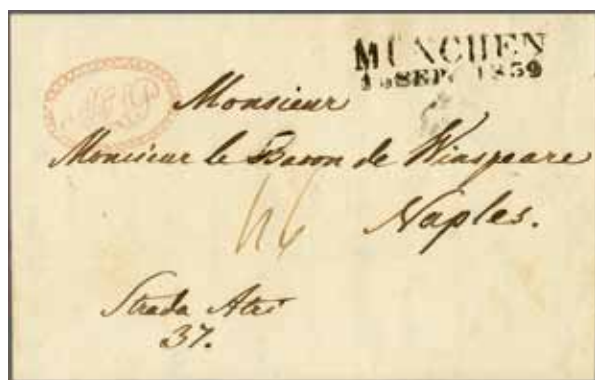 MÜNCHEN
SEP. 1859
Monsieur
Monsieur le Baron de Winspeare
Naples.
Strada Atri
37.